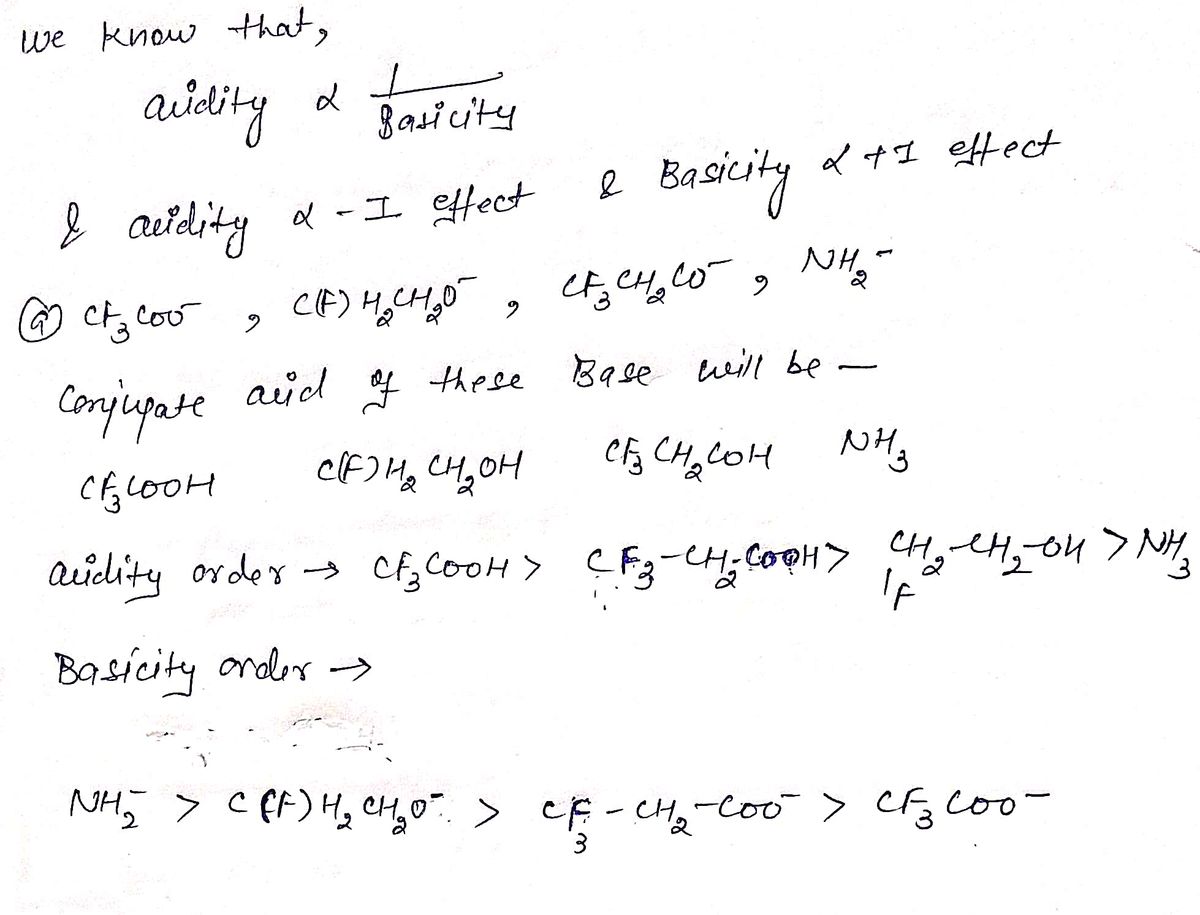 we know that,
acidity α 1/Basicity
& acidity α -I effect & Basicity α +I effect
(a) CF₃COO⁻ , C(F)H₂CH₂O⁻ , CF₃CH₂CO⁻ , NH₂⁻
Conjugate acid of these Base will be —
CF₃COOH C(F)H₂CH₂OH CF₃CH₂COH NH₃
acidity order → CF₃COOH > CF₃-CH₂-COOH > CH₂-CH₂-OH > NH₃
F
Basicity order →
NH₂⁻ > C(F)H₂CH₂O⁻ > CF₃-CH₂-COO⁻ > CF₃COO⁻